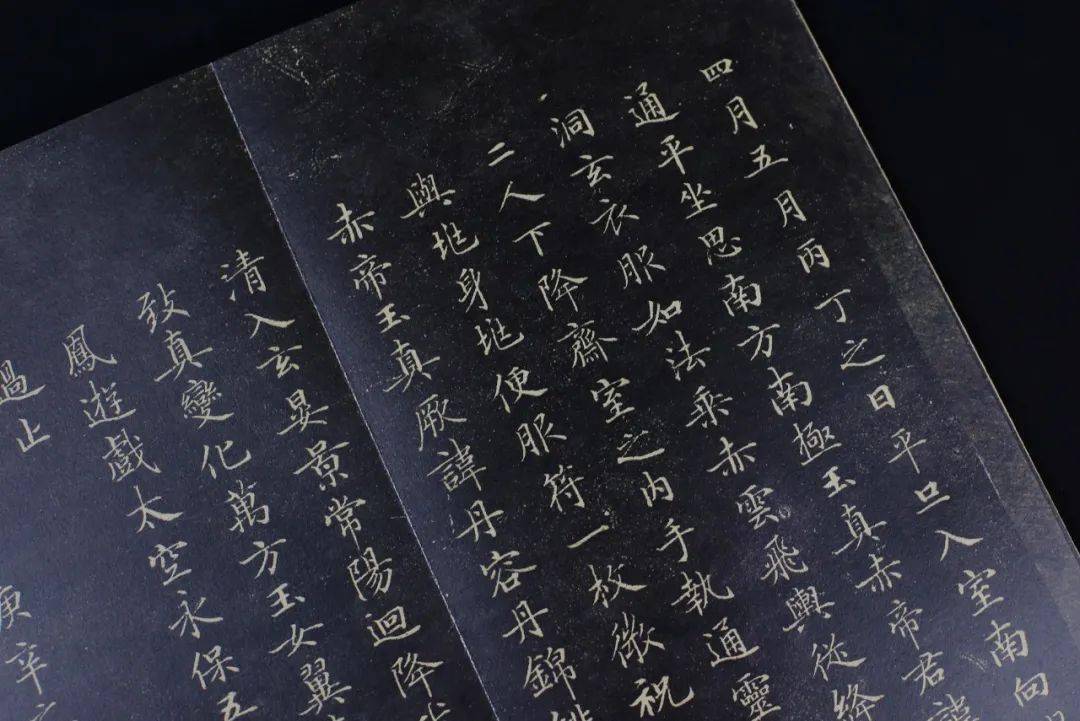 四月五月丙丁之日平旦入室南向
通平坐思南方南極玉真赤帝君諱
洞玄衣服如法乘赤雲飛輿從絳
二人下降齋室之内手執通靈
與𡊄身𡊄便服符一枚微祝
赤帝玉真厥諱丹容丹錦
清入玄晏景常陽迴降
致真變化萬方玉女翼
鳳遊戲太空永保五
過止
庚辛